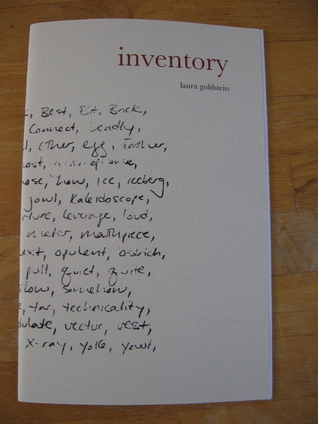 inventory
laura goldstein
Best, Bit, Brick,
Connect, Deadly,
Ether, egg, Father,
how, Ice, iceberg,
jowl, Kaleidoscope,
leverage, loud,
meter, mathpiece,
opulent, ostrich,
pull, quiet, quite,
somehow,
tar, technicality,
vector, vest,
x-ray, yolk, yowl,